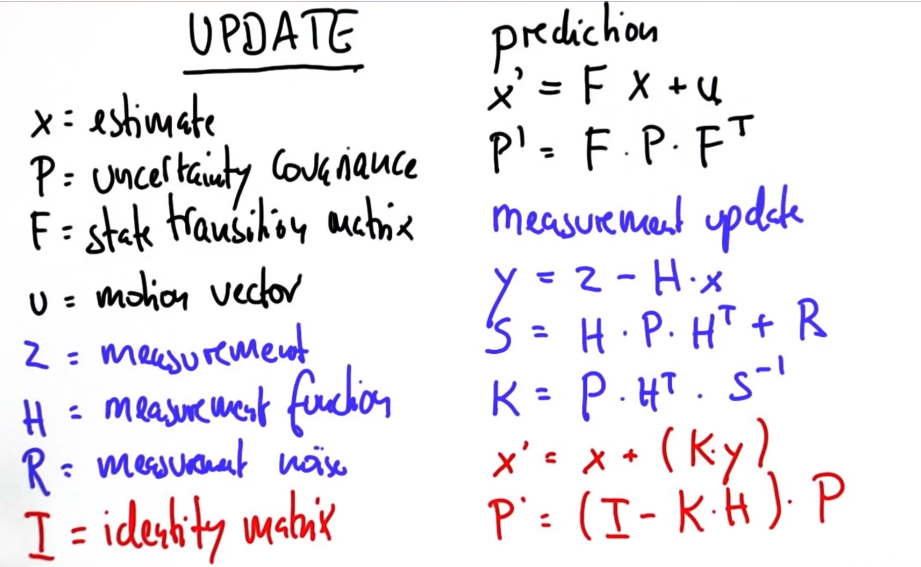 UPDATE
x = estimate
P = uncertainty covariance
F = state transition matrix
u = motion vector
z = measurement
H = measurement function
R = measurement noise
I = identity matrix
prediction
x' = F x + u
P' = F · P · Fᵀ
measurement update
y = z - H · x
S = H · P · Hᵀ + R
K = P · Hᵀ · S⁻¹
x' = x + (K · y)
P' = (I - K · H) · P